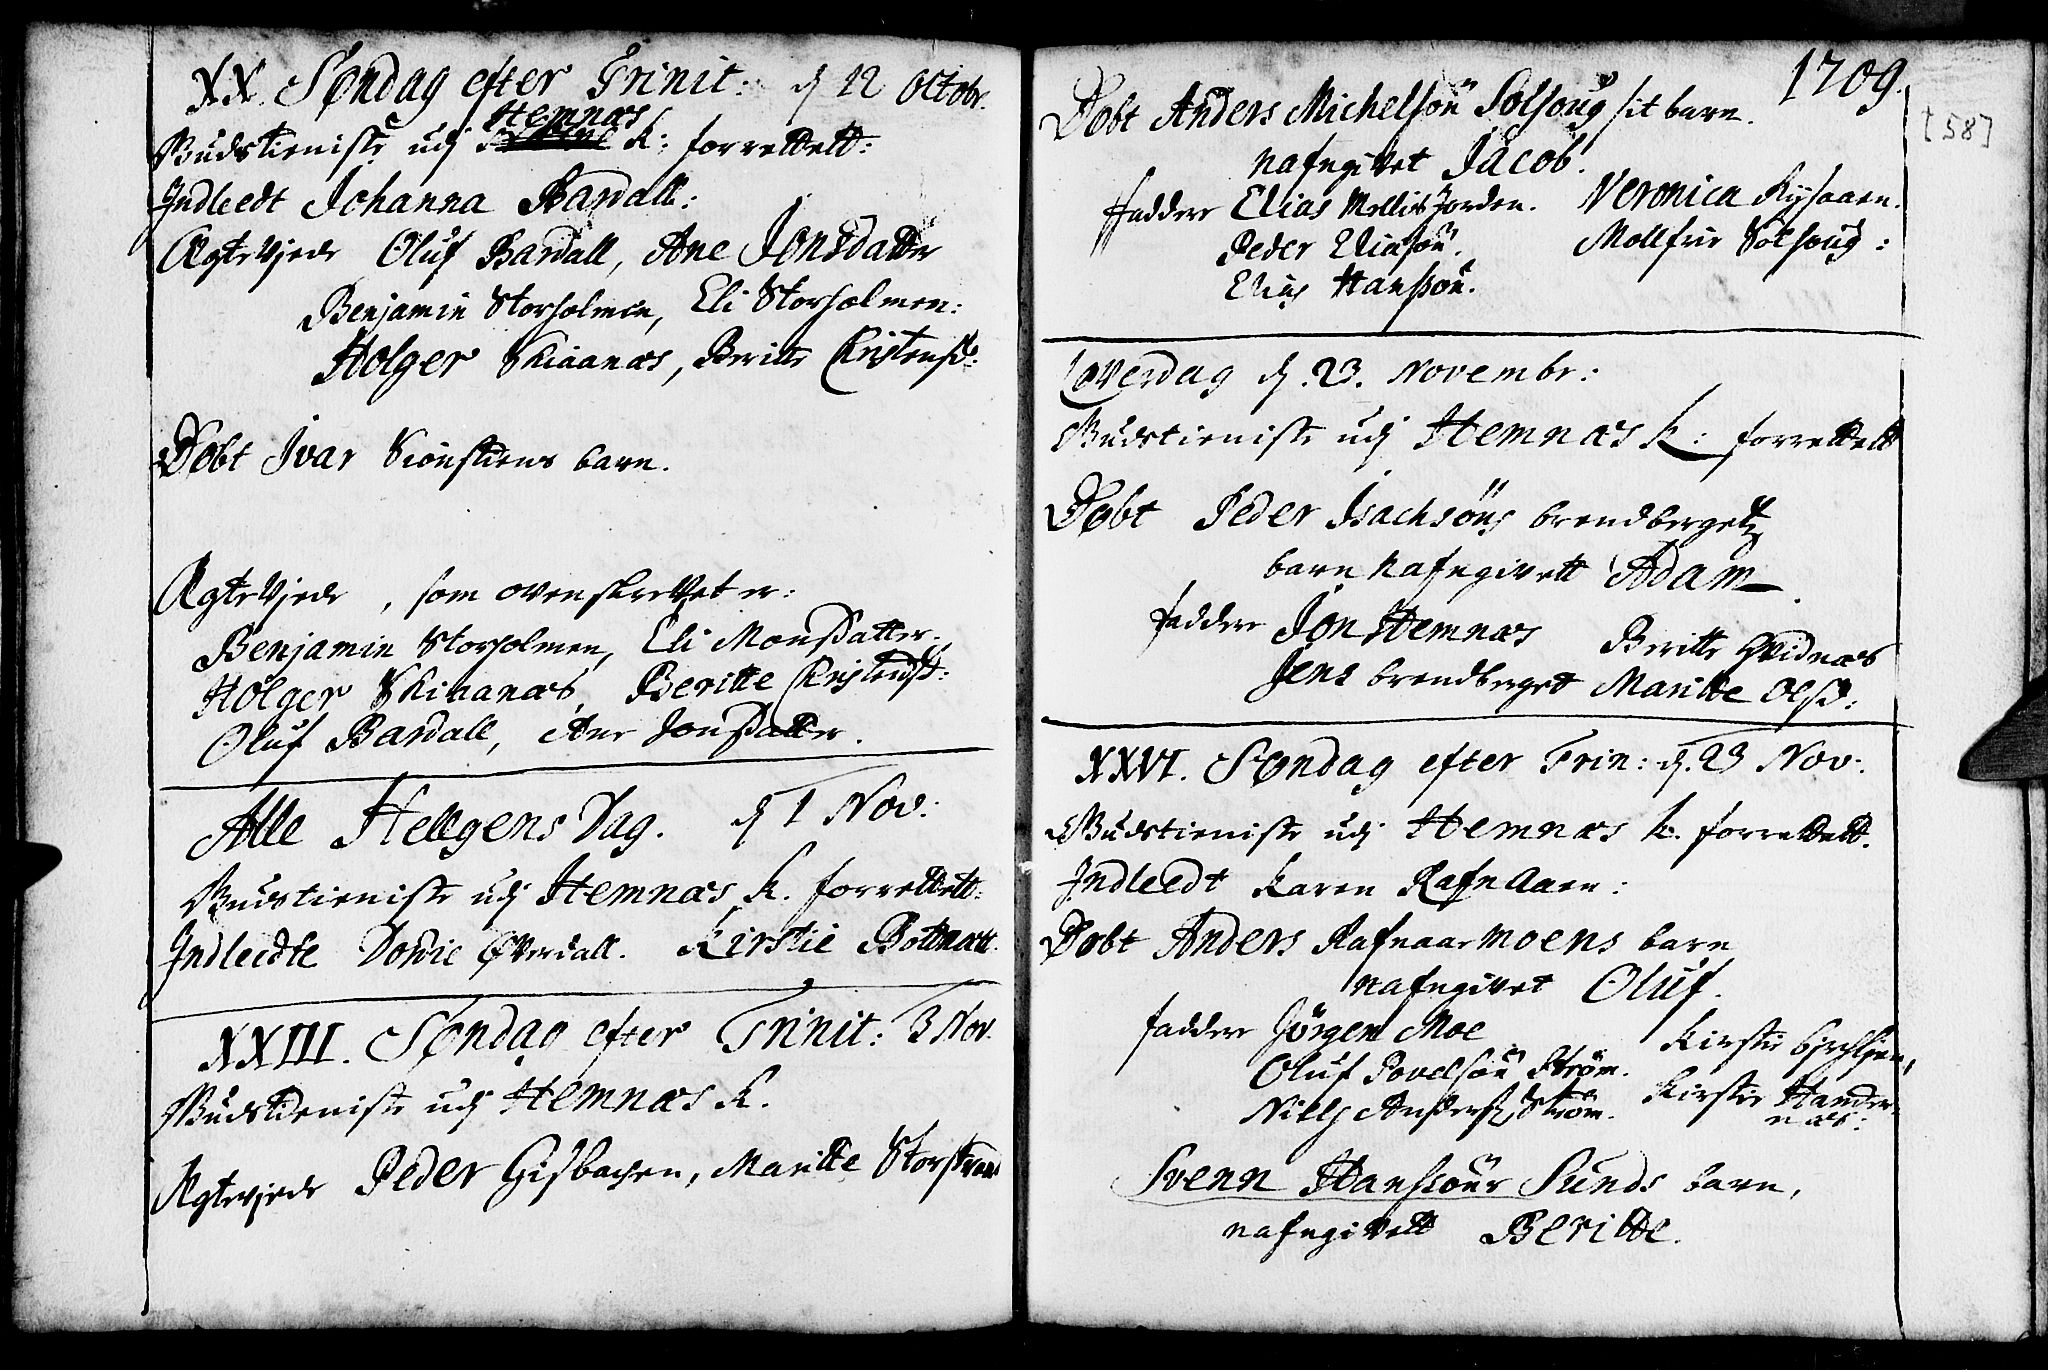 XX. Søndag efter Trinit: d 12 Octobr.
Hemnæs
Gudstieniste udj K: forrettett:
Indleedt Johanna Bardall:
Ægtevjede Oluf Bardall, Ane Jonsdatter
Benjamin Storholmen, Eli Storholmen:
Holger Skiaanæs, Beritte Christensd:
Døbt Ivar Siønstiens barn.
Ægtevjede, som ovenskrevet er:
Benjamin Storholmen, Eli Monsdatter.
Holger Skiaanæs, Beritte Christensd:
Oluf Bardall, Ane Jonsdatter.
Alle Hellgens Dag. d 1 Nov:
Gudstieniste udj Hemnæs K. forrettett:
Indleedte Dordie Øverdall. Kirstie Botten
XXIII. Søndag efter Trinit: 3 Nov.
Gudstieniste udj Hemnæs K.
Ægtevjede Peder Gisbachen, Maritte
1709.
[58]
Døbt Anders Michelsøn Solsoug sit barn.
nafngivet Jacob.
Faddere Elias Mellis Jorden. Veronica Rysaaen.
Peder Eliasøn. Mollfrie Solsoug:
Elias Hanssøn.
Løverdag d. 23. Novembr:
Gudstieniste udj Hemnæs K: forrettett
Døbt Peder Isachsøns brendbergetz
barn nafngivett Adam.
faddere Jon Hemnæs Beritte Hvidnæs
Jens brendberget Maritte Olsd:
XXVI. Søndag efter Trin: d. 23 Nov:
Gudstieniste udj Hemnæs k. forrettett.
Indleedt Karen Rafnaaen:
Døbt Anders Rafnaamoens barn
nafngivet Oluf.
faddere Jørgen Moe Kirstie
Oluf Povelsøn Strøm. Kirstie Hander-
Niels Anders. Strøm. næs:
Svenn Hanssøns Sunds barn,
nafngivett Beritte.